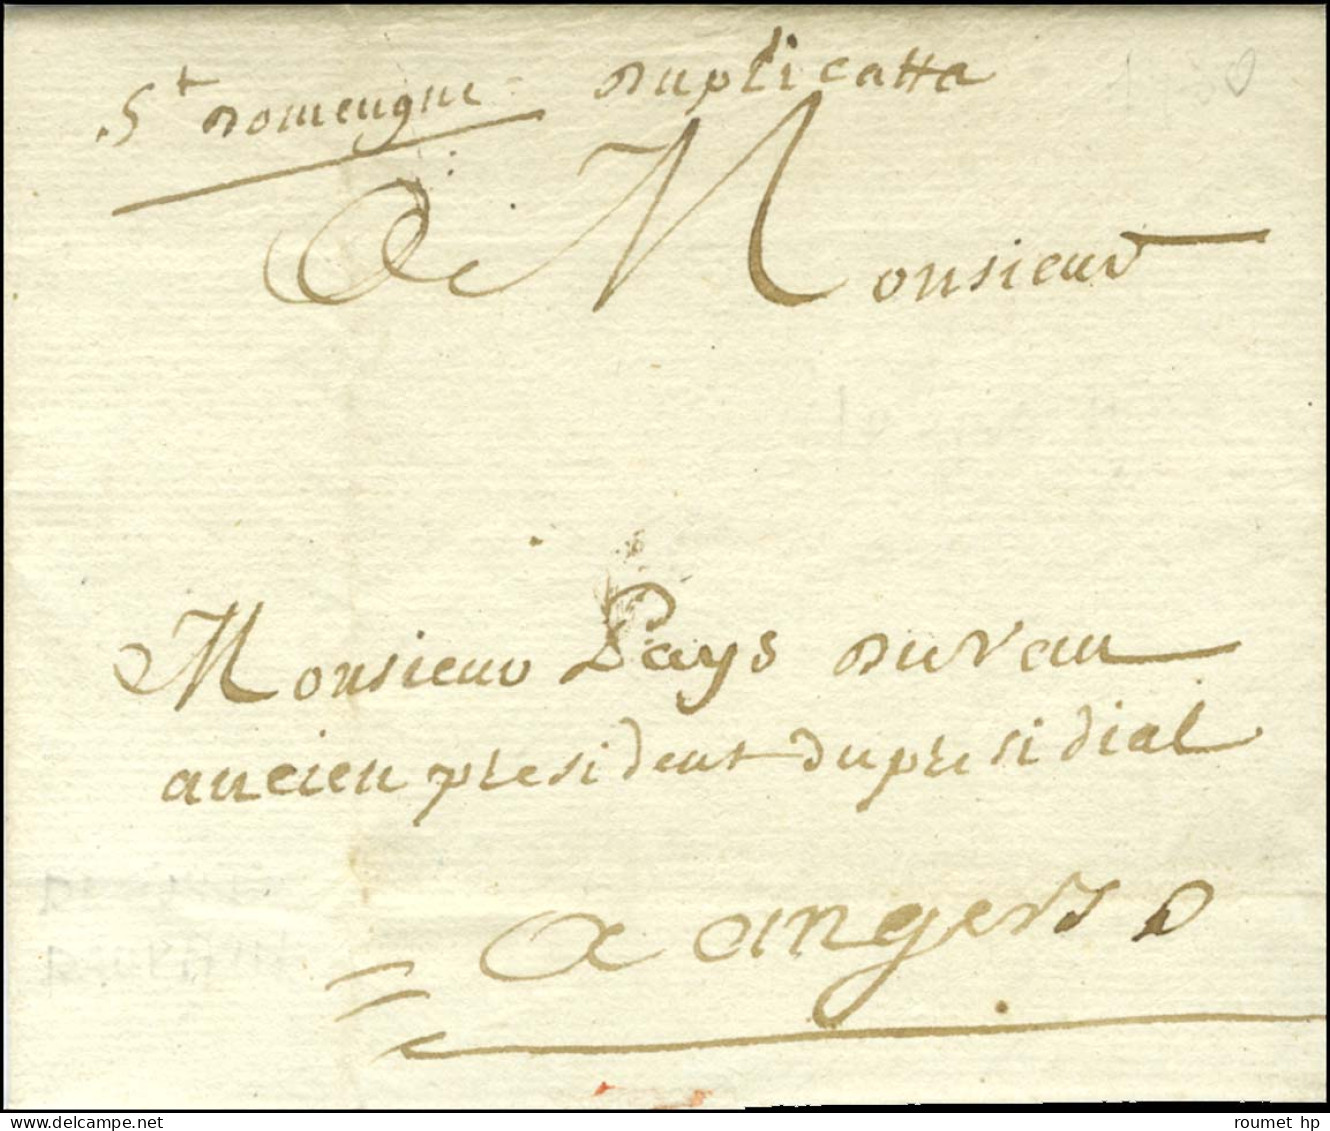 St Domengue Duplicatta
A Monsieur
Monsieur Pays Duvau
ancien president du presidial
a angers
roumet hp